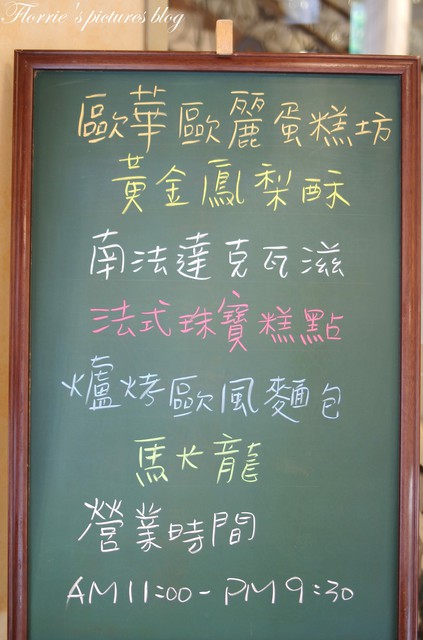 Florrie's pictures blog
歐華歐麗蛋糕坊
黃金鳳梨酥
南法達克瓦滋
法式珠寶糕點
爐烤歐風麵包
馬卡龍
營業時間
AM 11:00 - PM 9:30